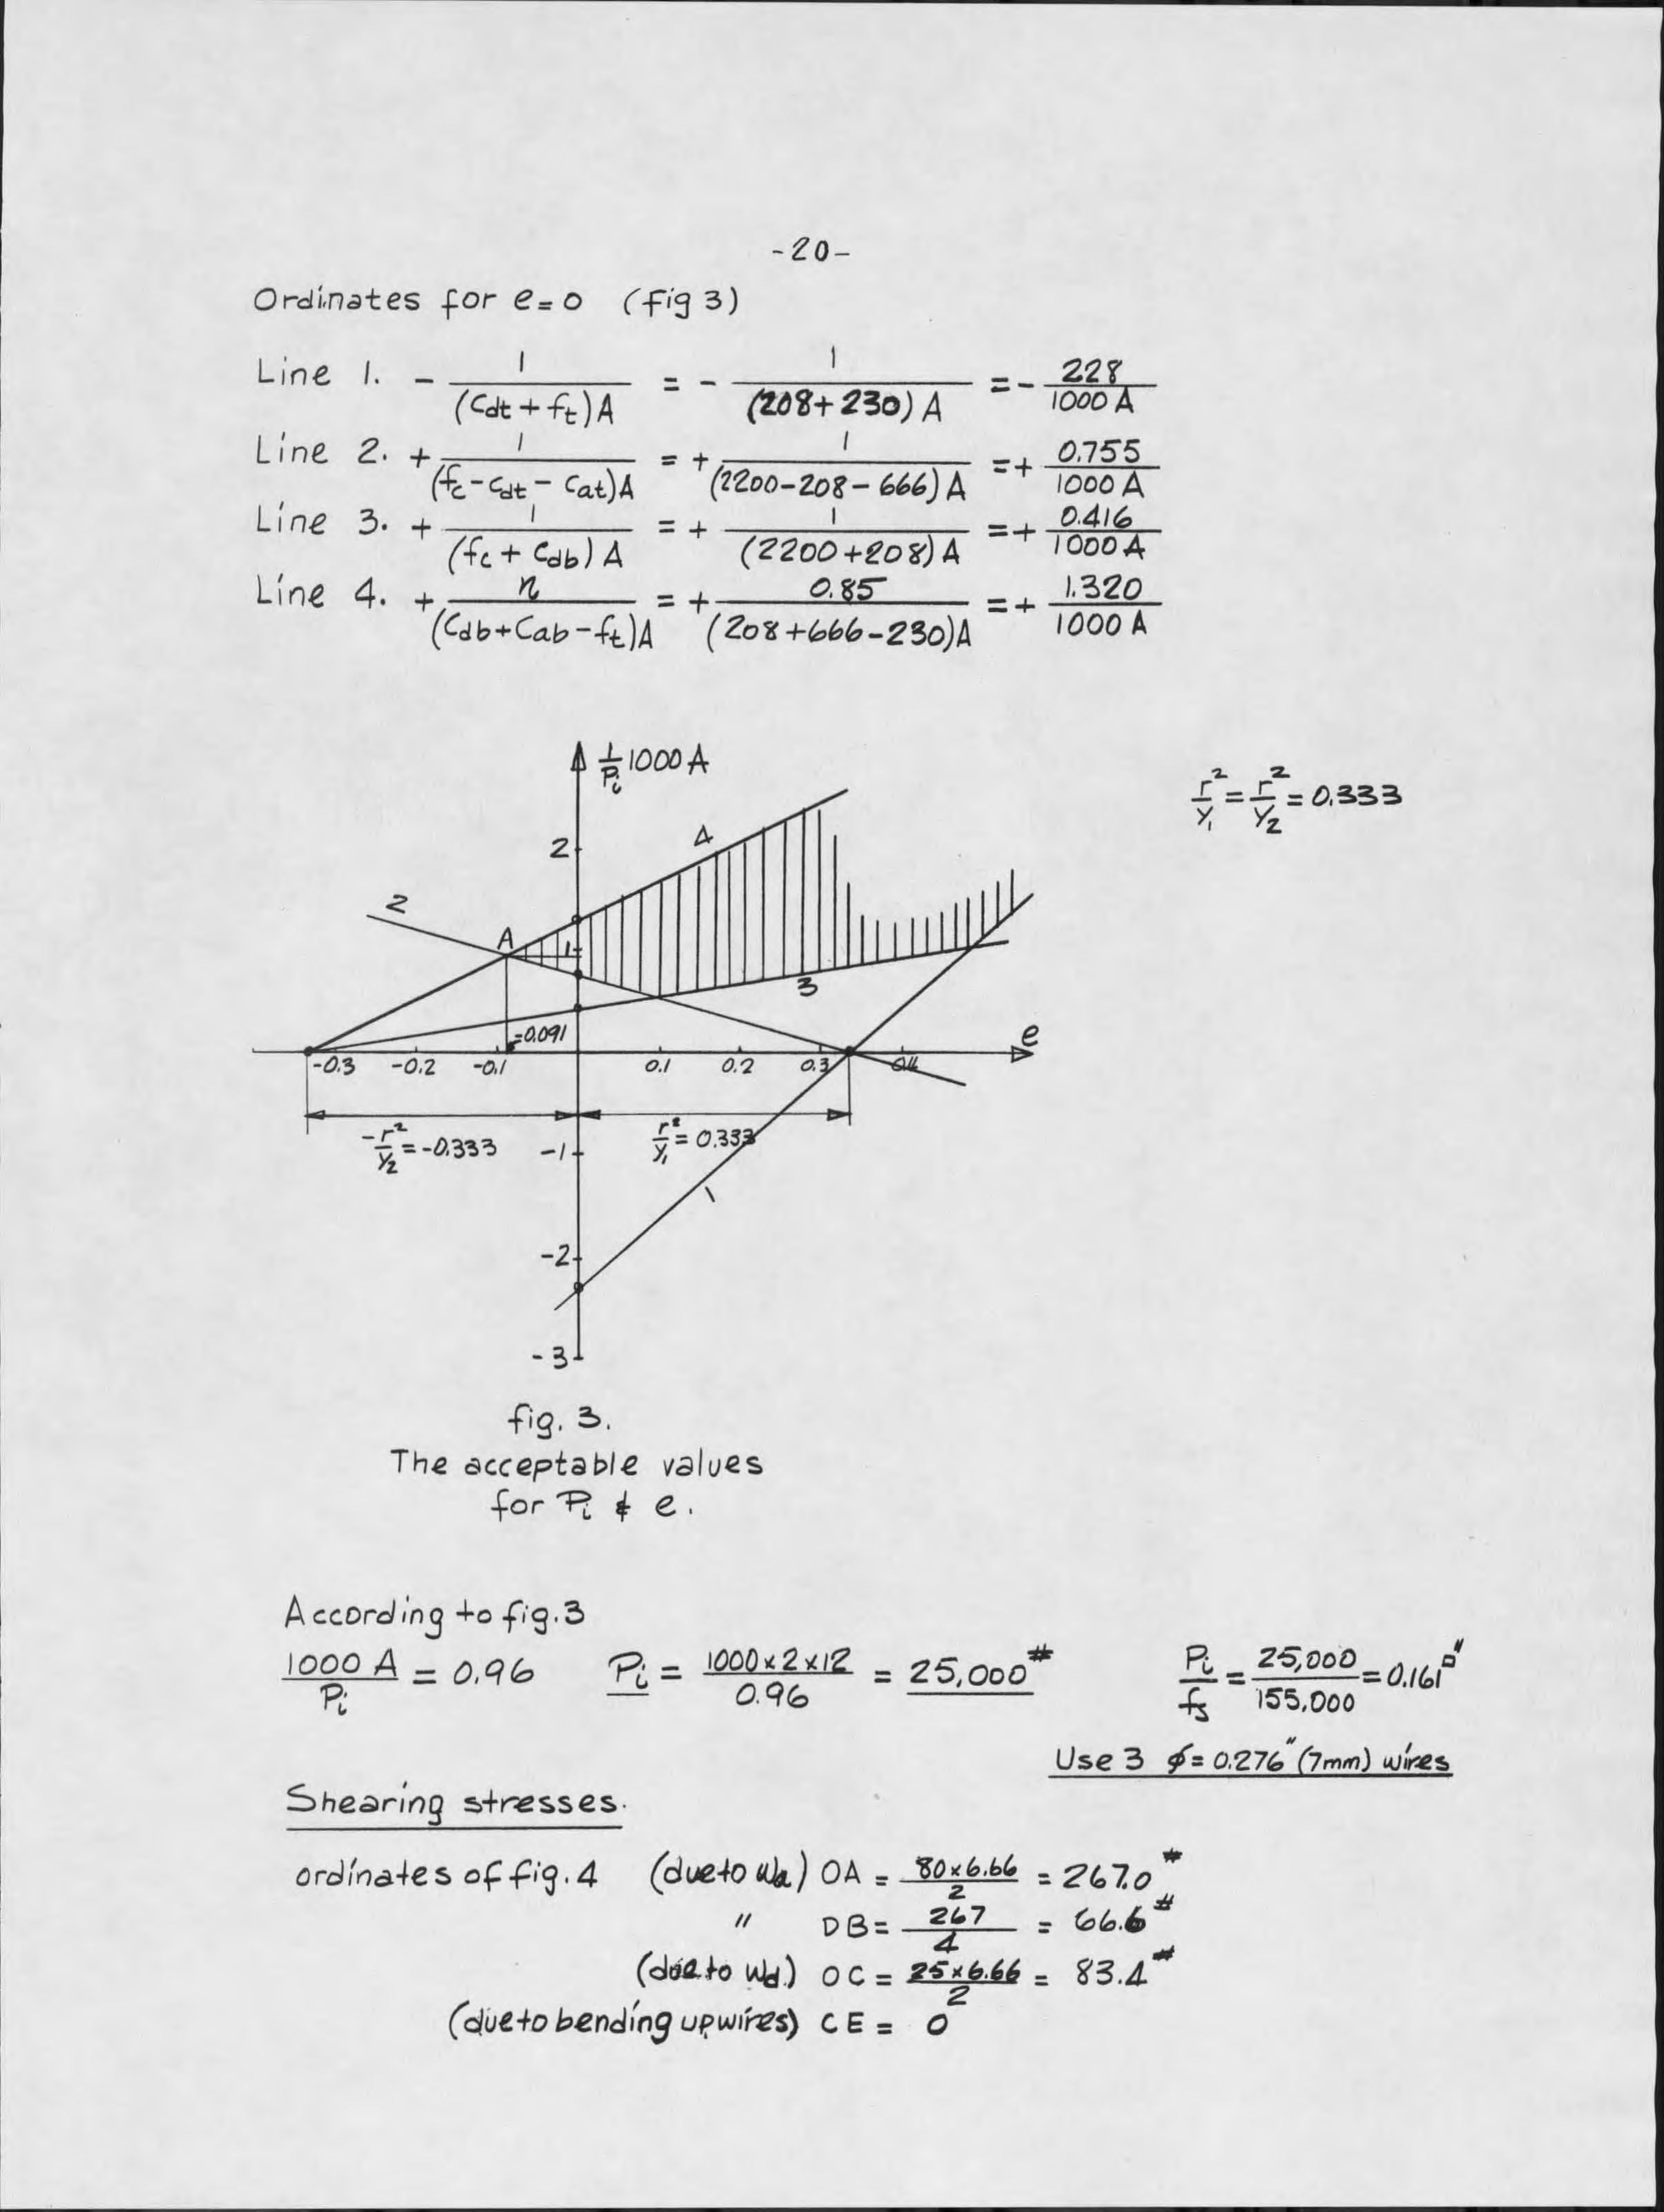 -20-
Ordinates for e=0 (fig 3)
Line 1. - 1/((Cdt + ft)A) = - 1/((208+230) A) = - 228/(1000 A)
Line 2. + 1/((fc - Cdt - Cat)A) = + 1/((2200-208-666) A) = + 0.755/(1000 A)
Line 3. + 1/((fc + Cdb) A) = + 1/((2200+208) A) = + 0.416/(1000 A)
Line 4. + n/((Cdb+Cab-ft)A) = + 0.85/((208+666-230)A) = + 1.320/(1000 A)
1/Pi 1000 A
r²/y1 = r²/y2 = 0.333
4
2
2
A
1
3
=0.091
e
-0.3 -0.2 -0.1 0.1 0.2 0.3 0.4
-r²/y2 = -0.333
r²/y1 = 0.333
-1
1
-2
-3
fig. 3.
The acceptable values
for Pi & e.
According to fig.3
1000 A/Pi = 0.96 Pi = 1000×2×12/0.96 = 25,000# Pi/fs = 25,000/155,000 = 0.161□"
Use 3 ϕ = 0.276" (7mm) wires
Shearing stresses.
ordinates of fig. 4 (due to Wa) OA = 80×6.66/2 = 267.0#
" DB = 267/4 = 66.6#
(due to Wd) OC = 25×6.66/2 = 83.4#
(due to bending up wires) CE = 0